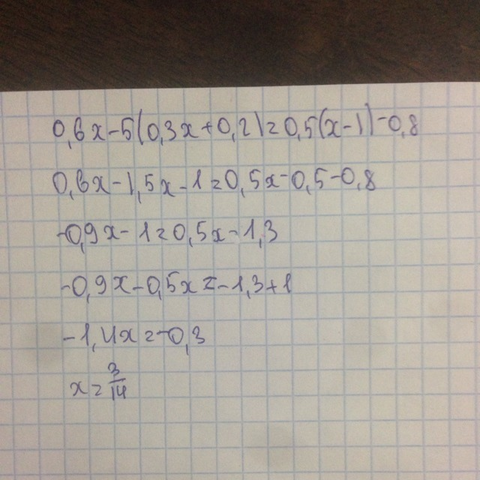 0,6x-5(0,3x+0,2)=0,5(x-1)-0,8
0,6x-1,5x-1=0,5x-0,5-0,8
-0,9x-1=0,5x-1,3
-0,9x-0,5x=-1,3+1
-1,4x=-0,3
x=3/14